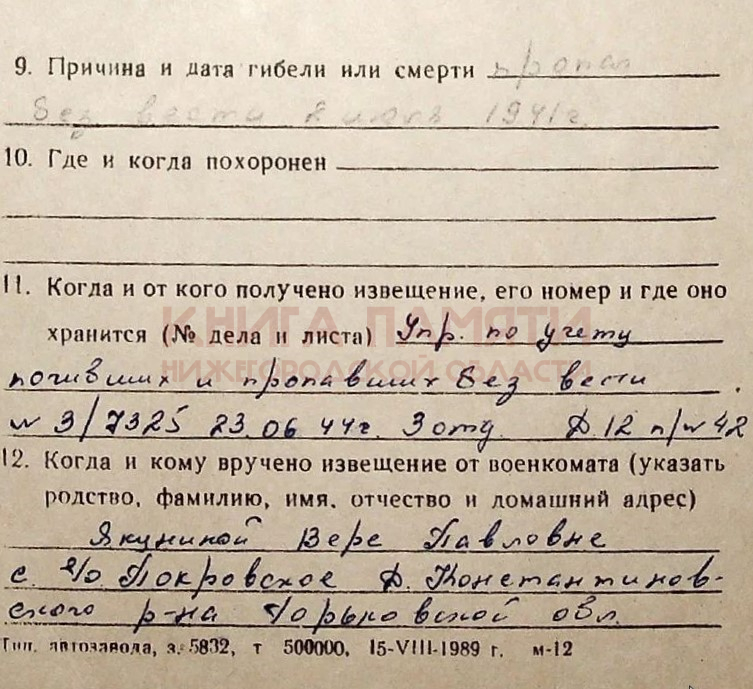 9. Причина и дата гибели или смерти пропал
без вести в июле 1941г.
10. Где и когда похоронен
11. Когда и от кого получено извещение, его номер и где оно
хранится (№ дела и листа) Упр. по учету
КНИГА ПАМЯТИ
НИЖЕГОРОДСКОЙ ОБЛАСТИ
погибших и пропавших без вести
№ 3/7325 23.06 44г. 3 отд. Д.12 п/№ 42
12. Когда и кому вручено извещение от военкомата (указать
родство, фамилию, имя, отчество и домашний адрес)
Якуниной Вере Павловне
с. Покровское Д. Константинов-
ского р-на Горьковской обл.
Тип. автозавода, з. 5832, т 500000, 15-VIII-1989 г. м-12